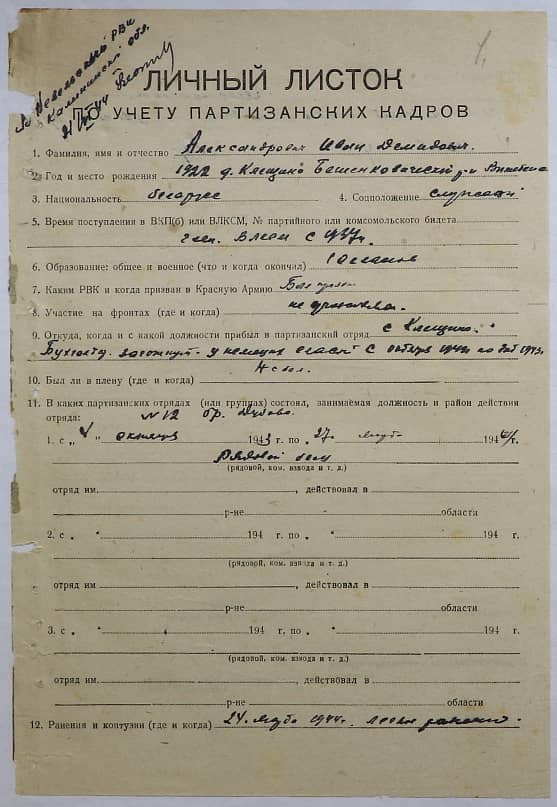 Невельский РВК
Калининской обл.
ЛИЧНЫЙ ЛИСТОК
ПО УЧЕТУ ПАРТИЗАНСКИХ КАДРОВ
1. Фамилия, имя и отчество Александрович Иван Демидович.
2. Год и место рождения 1922 д. Клещино Бешенковичский р-н Витебск
3. Национальность белорус 4. Соцположение служащий
5. Время поступления в ВКП(б) или ВЛКСМ, № партийного или комсомольского билета
член ВЛКСМ с 1937г.
6. Образование: общее и военное (что и когда окончил) 10 классов
7. Каким РВК и когда призван в Красную Армию
8. Участие на фронтах (где и когда) не принимал.
9. Откуда, когда и с какой должности прибыл в партизанский отряд с Клещино.
Бухгалтер у немецких с октября по 1943г
10. Был ли в плену (где и когда) Не был.
11. В каких партизанских отрядах (или группах) состоял, занимаемая должность и район действия
отряда: №12 бр. Дубова
1. с „ октября 1943 г. по „ 27 194 г.
Рядовой боец
(рядовой, ком. взвода и т. д.)
отряд им. , действовал в
р-не области
2. с „ “ 194 г. по „ “ 194 г.
(рядовой, ком. взвода и т. д.)
отряд им , действовал в
р-не области
3. с „ “ 194 г. по „ “ 194 г.
(рядовой, ком. взвода и т. д.)
отряд им. , действовал в
р-не области
12. Ранения и контузии (где и когда) 24 1944г.